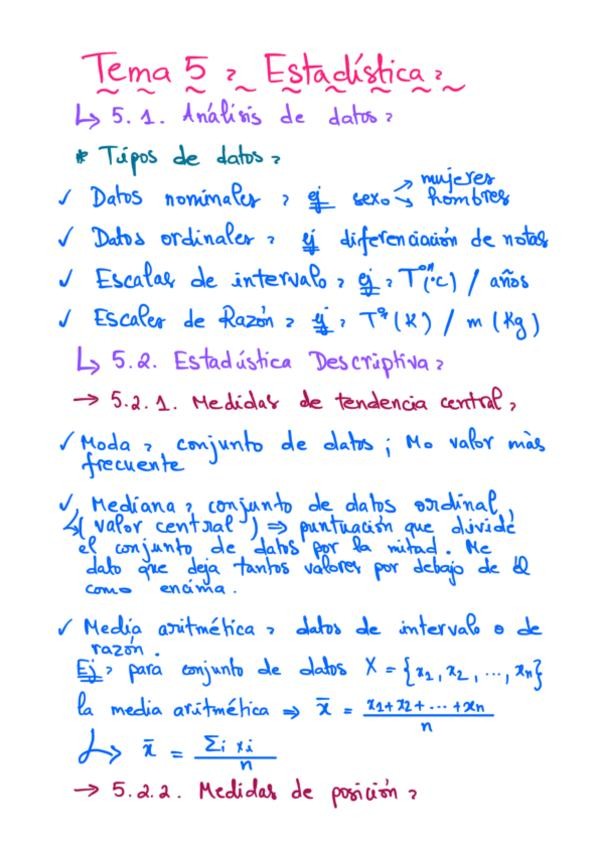 Tema 5 : Estadística :
↳ 5.1. Análisis de datos :
* Tipos de datos :
✓ Datos nominales : ej sexo → mujeres
→ hombres
✓ Datos ordinales : ej diferenciación de notas
✓ Escalas de intervalo : ej : Tª (°C) / años
✓ Escalas de Razón : ej : Tª (K) / m (Kg)
↳ 5.2. Estadística Descriptiva :
→ 5.2.1. Medidas de tendencia central :
✓ Moda : conjunto de datos ; Mo valor más
frecuente
✓ Mediana : conjunto de datos ordinal,
↳ (valor central) ⇒ puntuación que divide
el conjunto de datos por la mitad. Me
dato que deja tantos valores por debajo de él
como encima.
✓ Media aritmética : datos de intervalo o de
razón.
Ej : para conjunto de datos X = {x1, x2, ..., xn}
la media aritmética ⇒ x̄ = x1 + x2 + ... + xn / n
↳ x̄ = Σi xi / n
→ 5.2.2. Medidas de posición :